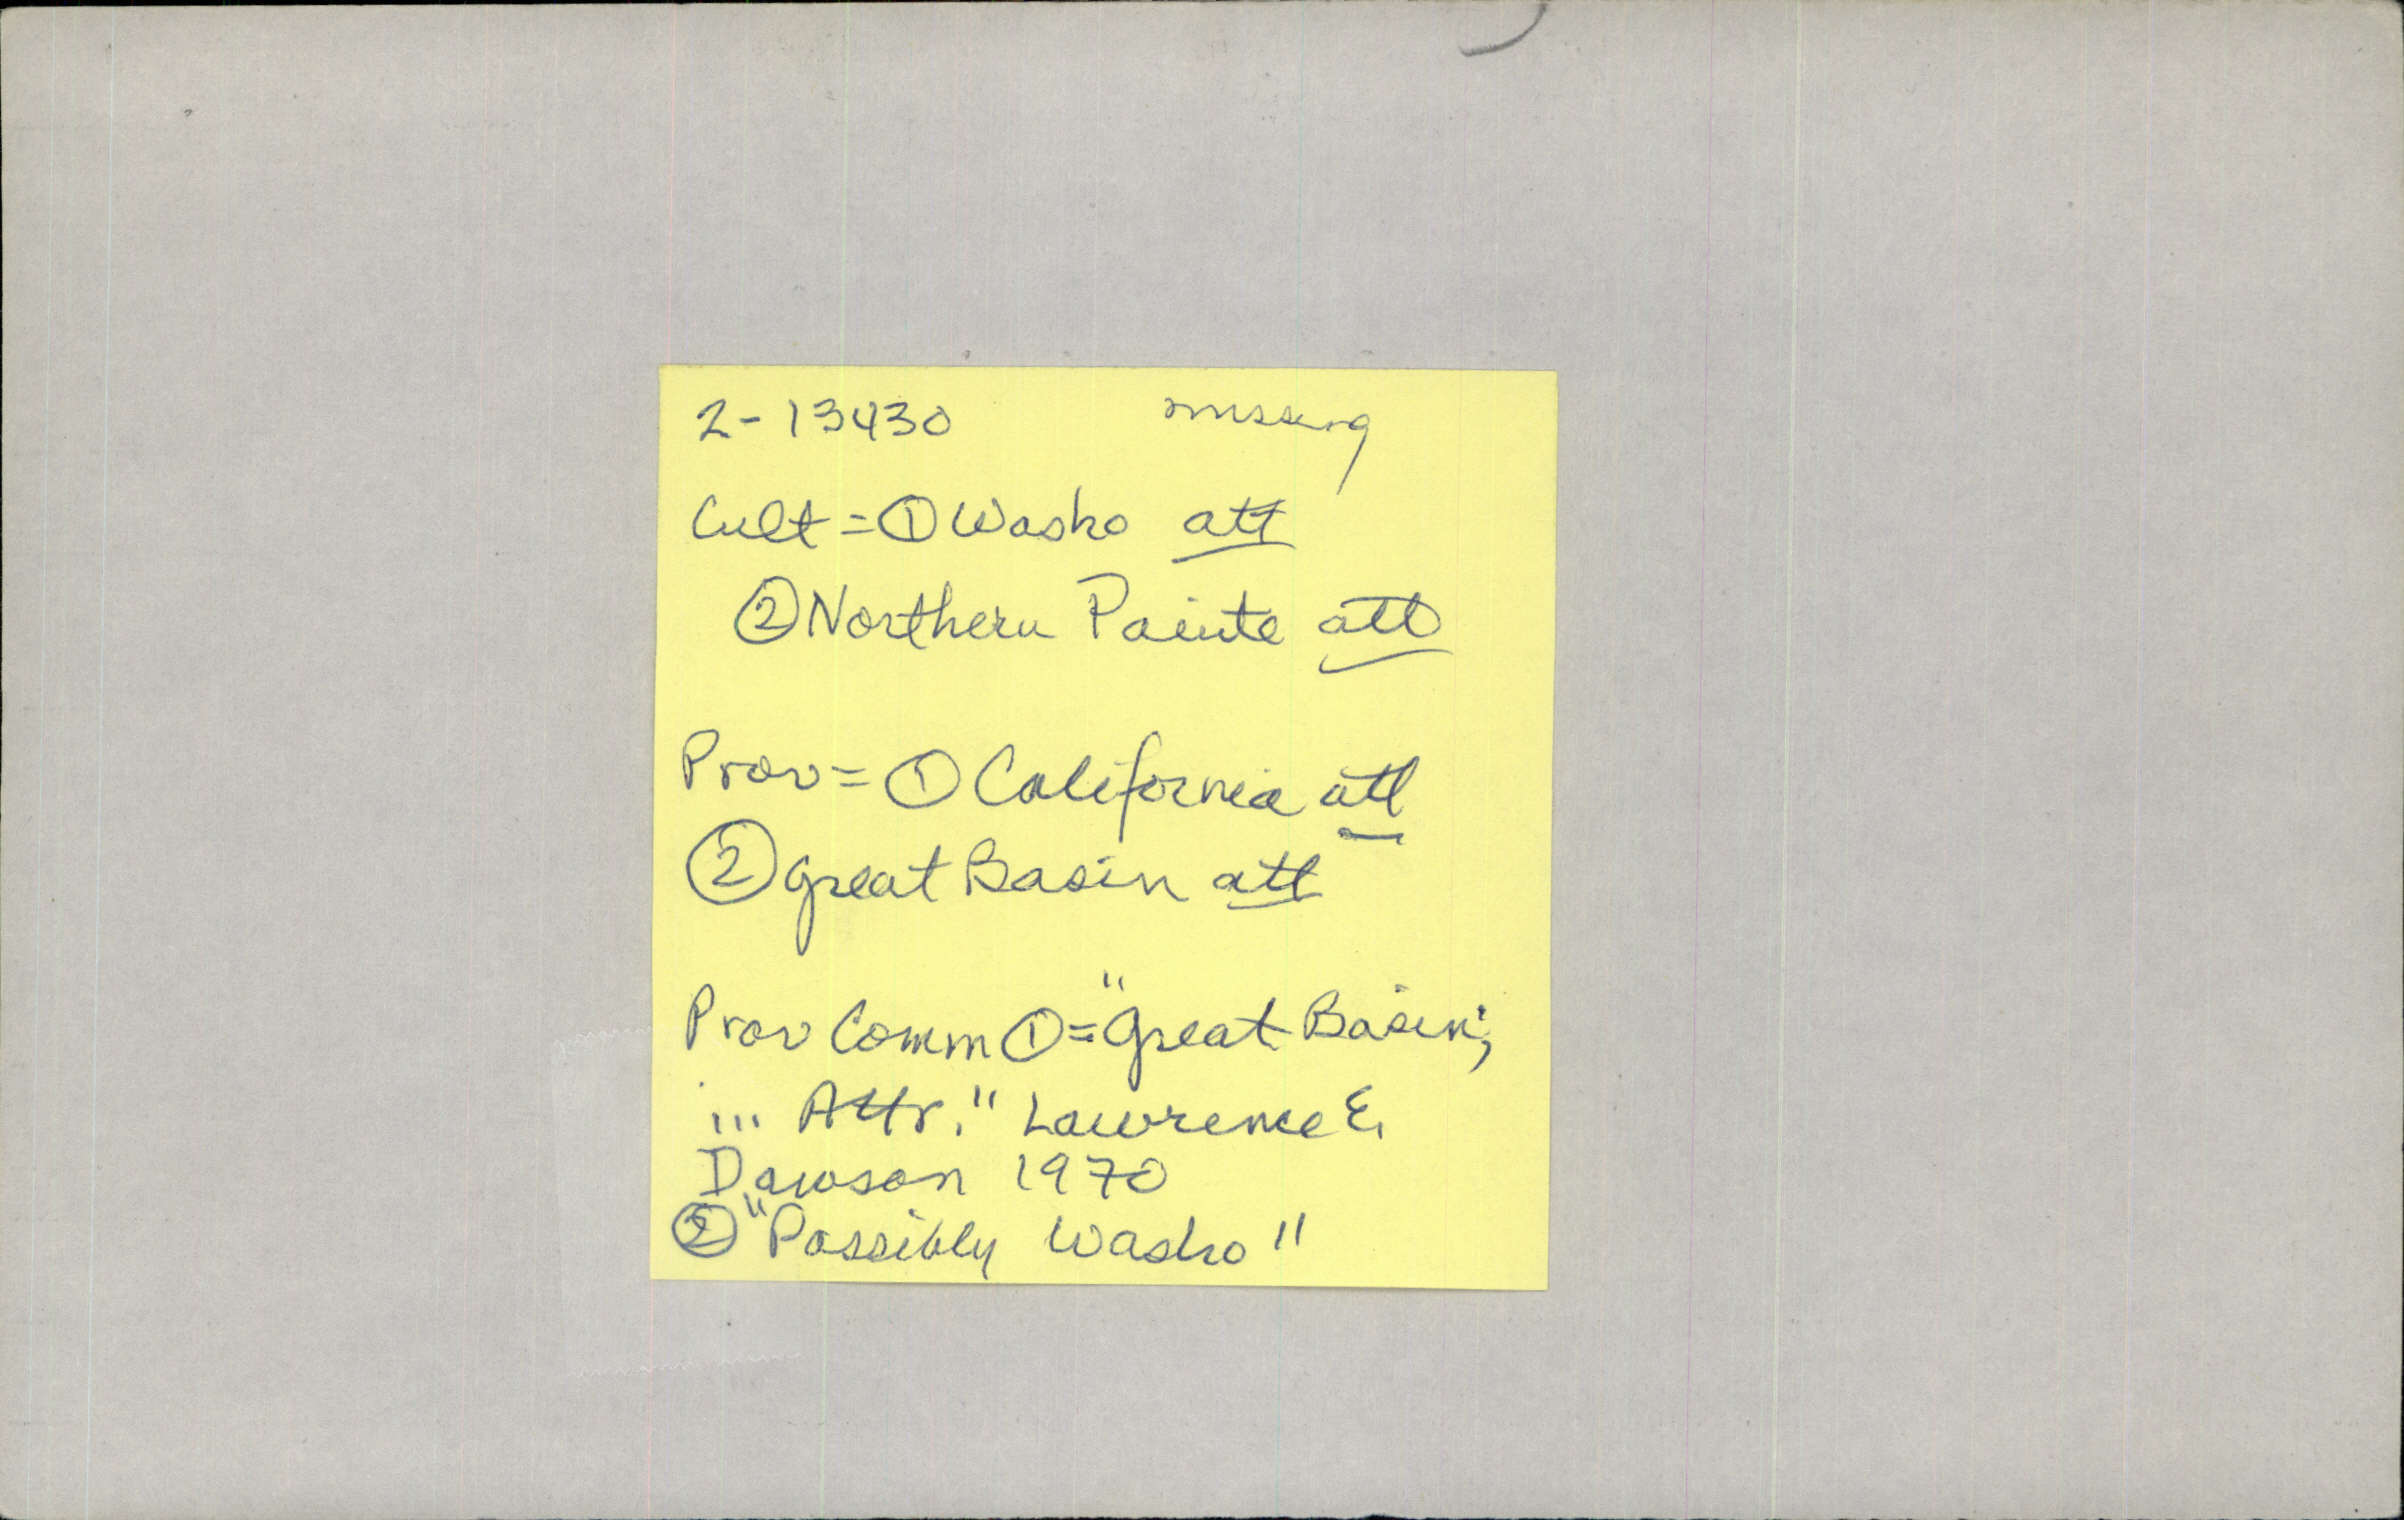 2-13430 missing
Cult = ① Washo att
② Northern Paiute att
Prov = ① California att
② Great Basin att
Prov Comm ① = "Great Basin;
... Attr." Lawrence E.
Dawson 1970
② "Possibly Washo"